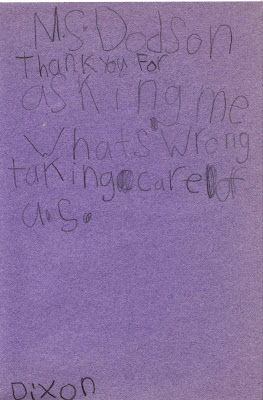 M.S. Dodson
Thank you For
asking me
whats wrong
taking care of
u.s.
Dixon